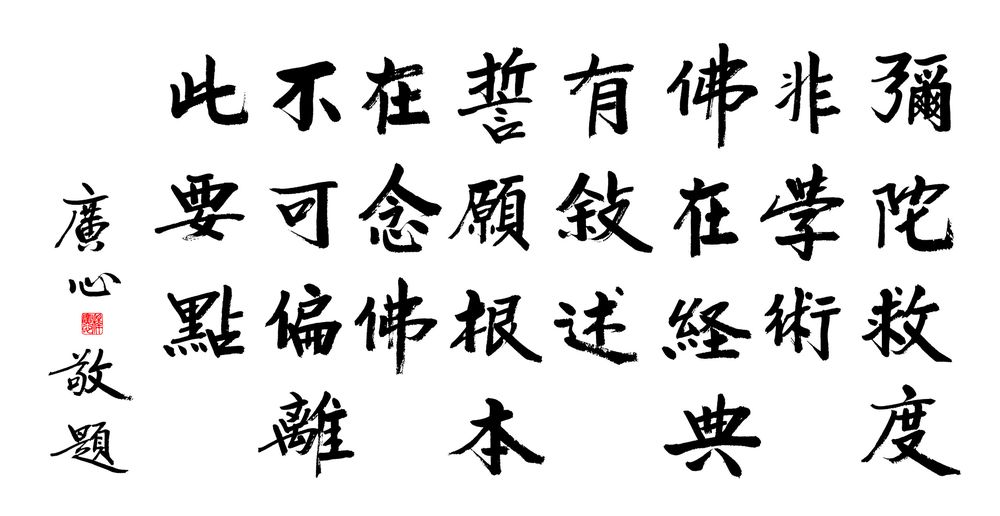 彌陀救度
非學術
佛在経典
有敍述
誓願根本
在念佛
不可偏離
此要點
廣心敬題